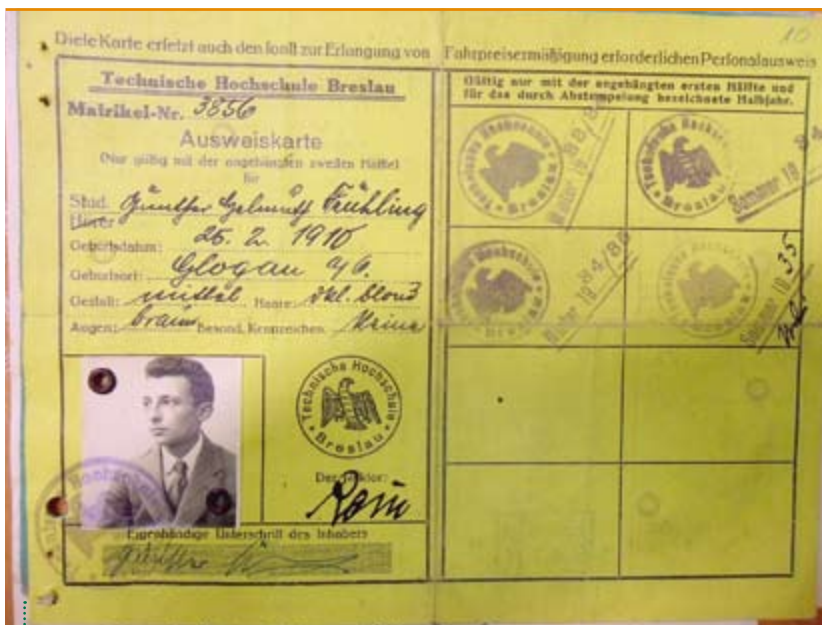 10
Diese Karte ersetzt auch den sonst zur Erlangung von Fahrpreisermäßigung erforderlichen Personalausweis
Technische Hochschule Breslau
Matrikel-Nr. 3856
Ausweiskarte
(Nur gültig mit der angehängten zweiten Hälfte)
für
Stud. Günther Helmuth Frühling
Hörer
Geburtsdatum: 26. 2. 1910
Geburtsort: Glogau
Gestalt: mittel Haare: dkl. blond
Augen: braun Besond. Kennzeichen: Keine
Technische Hochschule
Breslau
Der Rektor:
Eigenhändige Unterschrift des Inhabers
Günther
Gültig nur mit der angehängten ersten Hälfte und
für das durch Abstempelung bezeichnete Halbjahr.
Technische Hochschule
Breslau
Winter 19
Technische Hochschule
Breslau
Sommer 19
Technische Hochschule
Breslau
Winter 19
Technische Hochschule
Breslau
Sommer 19 35